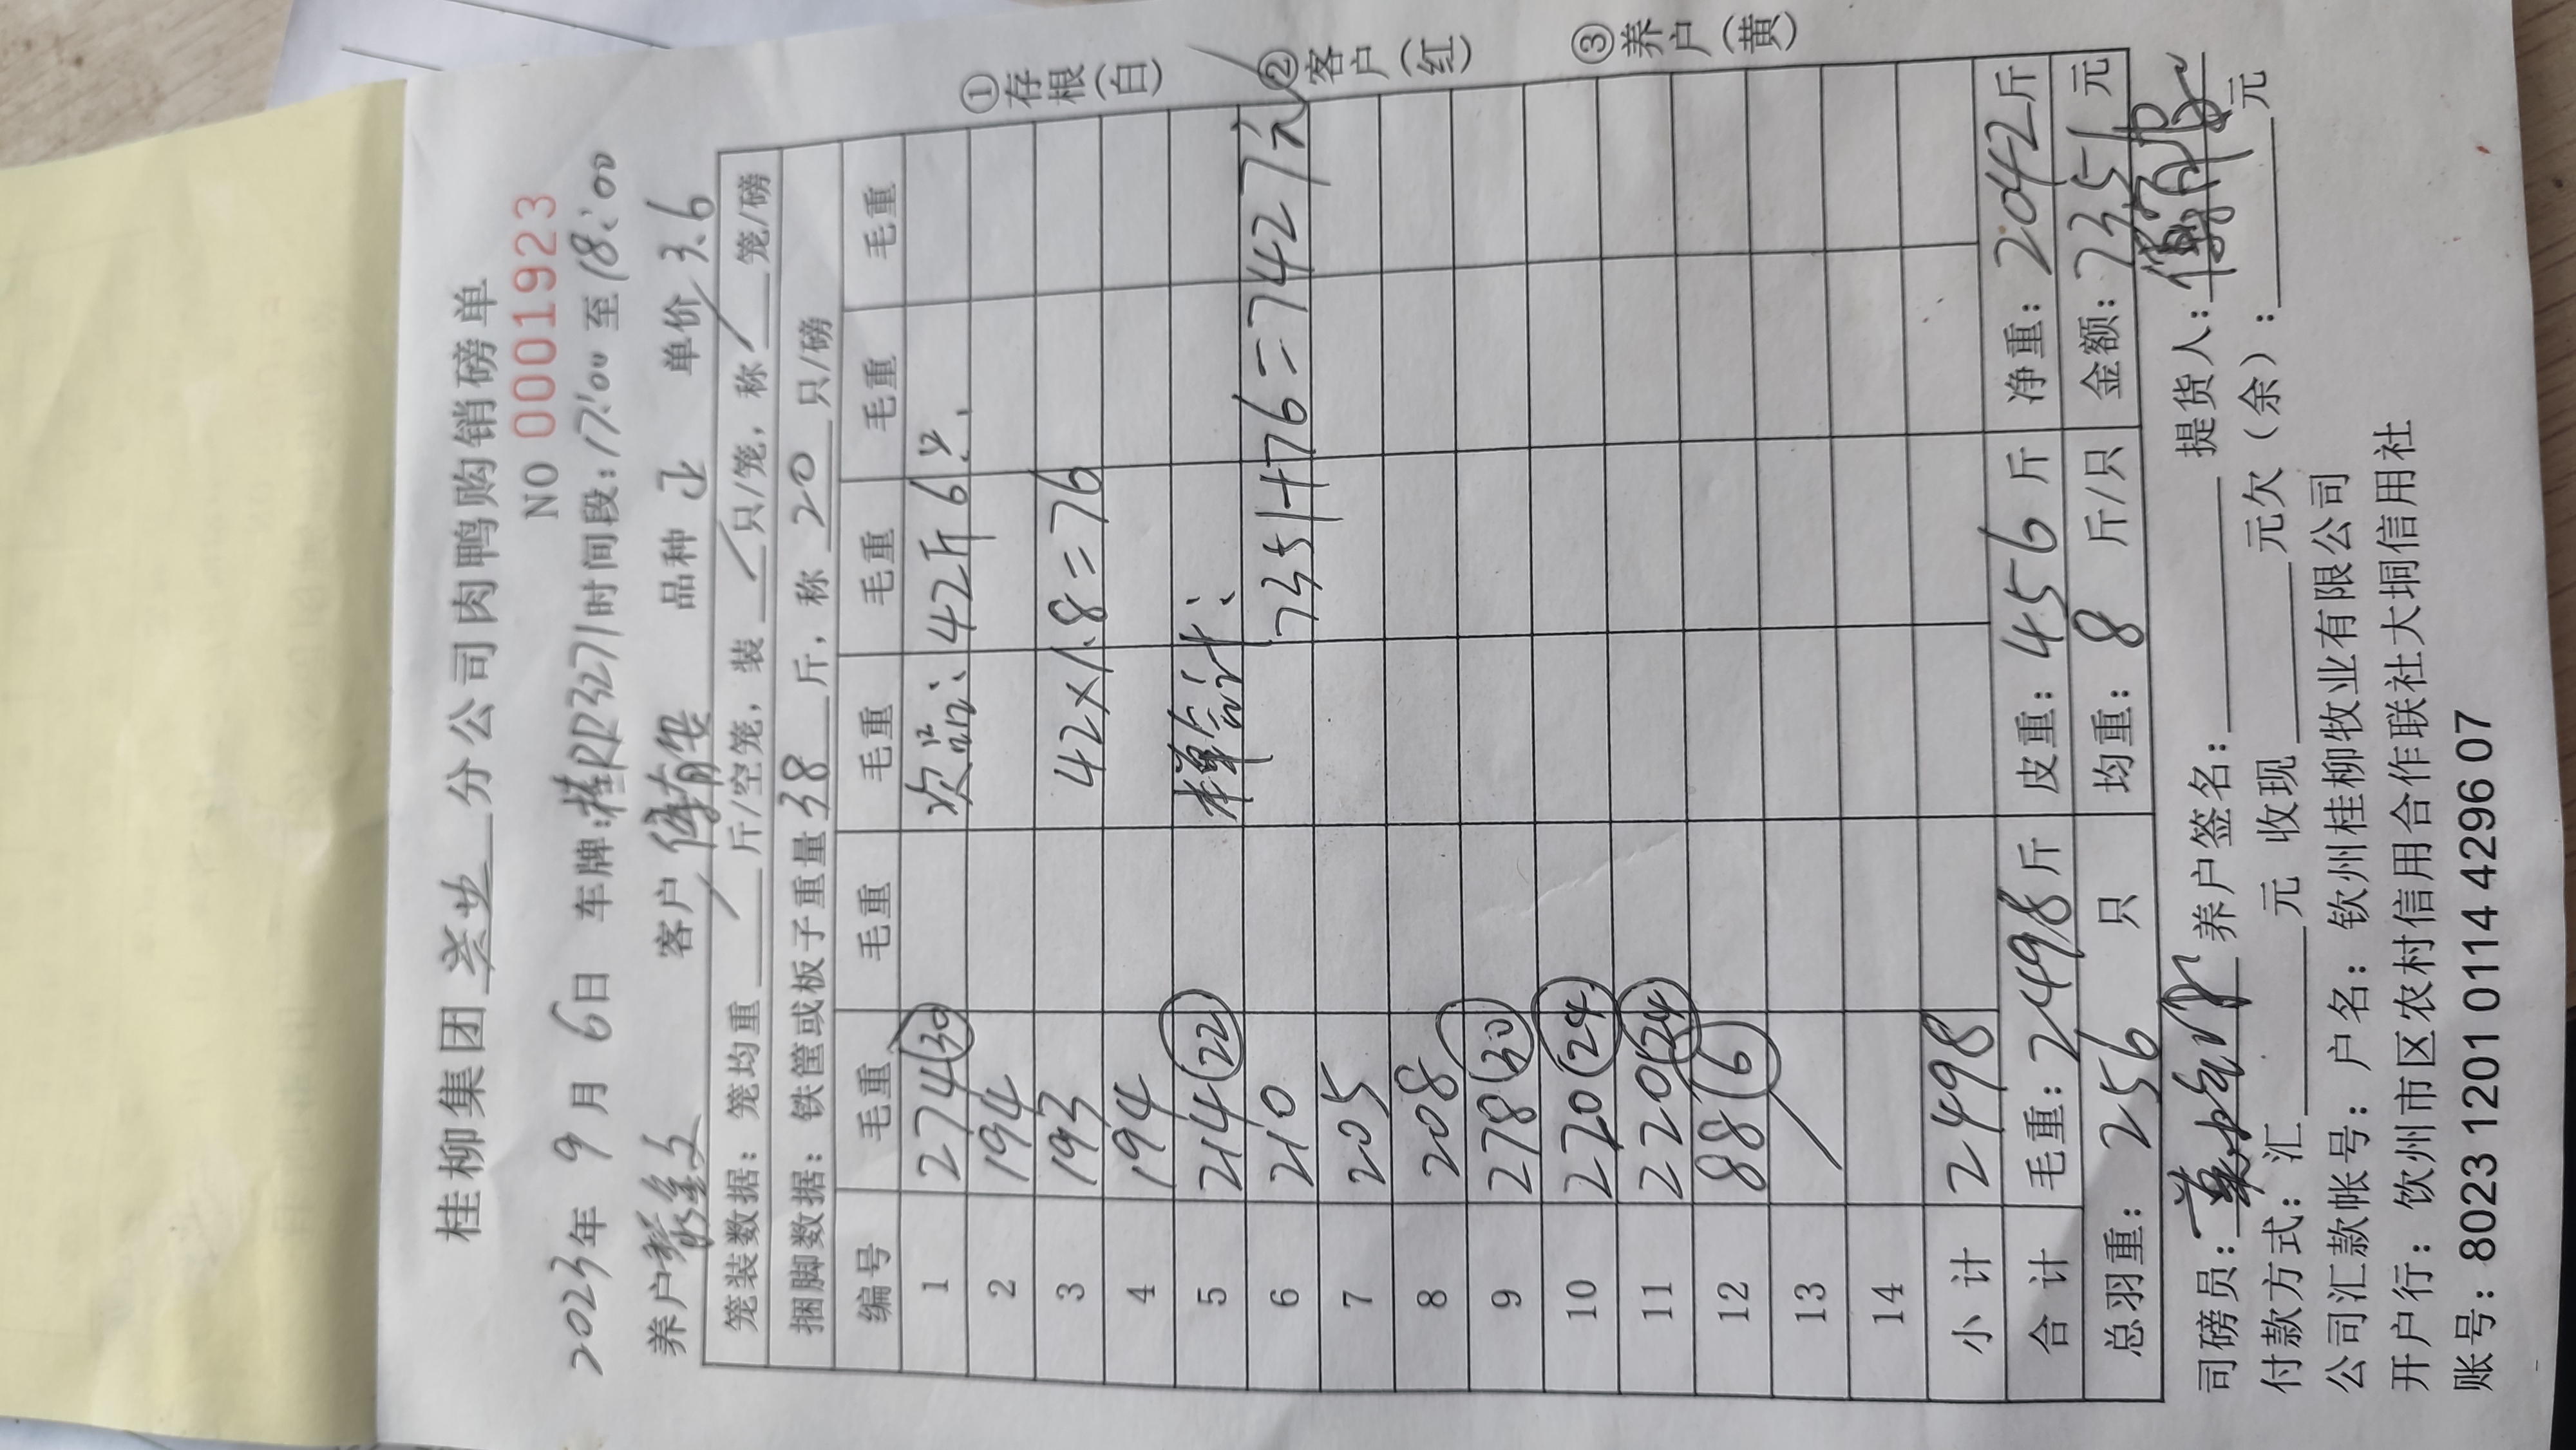 桂柳集团 兴业 分公司肉鸭购销磅单
NO 0001923
2023年 9月 6日 车牌:桂RD3271时间段:17:00至18:00
养户 客户 品种 正 单价 3.6
笼装数据:笼均重 斤/空笼,装 只/笼,称 笼/磅
捆脚数据:铁筐或板子重量38斤,称 20 只/磅
编号 毛重 毛重 毛重 毛重 毛重 毛重
1 274(30) 次品:42斤6只.
2 194
3 193 42×1.8=76
4 194
5 214(22) 合计:
6 210 7351+76=7427元
7 205
8 208
9 278(30)
10 220(24)
11 220(24)
12 88(6)
13
14
小计 2498
合计 毛重:2498斤 皮重:456斤 净重:2042斤
总羽重:256只 均重:8斤/只 金额:7351元
司磅员: 养户签名: 提货人:
付款方式:汇 元 收现 元欠(余): 元
公司汇款帐号:户名:钦州桂柳牧业有限公司
开户行:钦州市区农村信用合作联社大垌信用社
账号:8023 1201 0114 4296 07
①存根(白)
②客户(红)
③养户(黄)